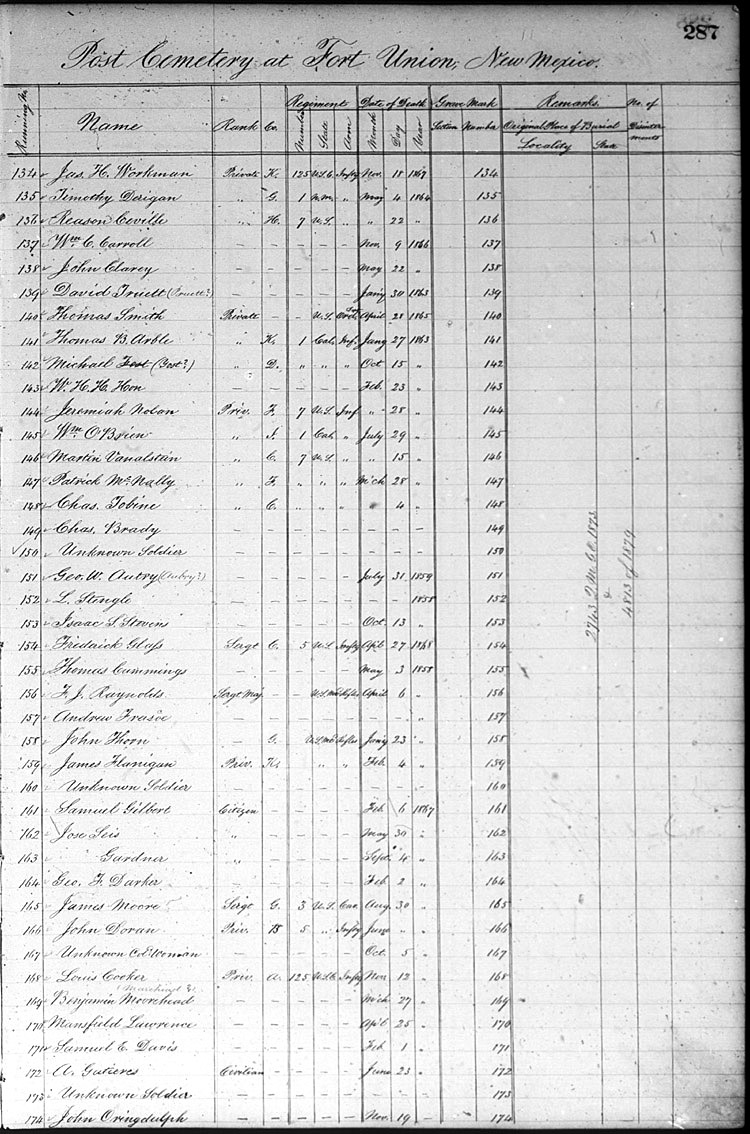 287
Post Cemetery at Fort Union, New Mexico.
Running No. Name Rank Co. Regiment Number State Arm Date of Death Month Day Year Grave Mark Section Number Remarks. Original Place of Burial Locality State No. of Disinterments
134 Jas. H. Workman Private K. 125 U.S.C. Infty Nov. 18 1867 134
135 Timothy Desigan " G. 1 N.M. " May 4 1864 135
136 Reason Ceville " H. 7 U.S. " " 22 " 136
137 Wm. C. Carroll – – – – – Nov. 9 1866 137
138 John Clarey – – – – – May 22 " 138
139 David Truett (Pruett?) – – – – – Jan'y 30 1863 139
140 Thomas Smith Private – – U.S. Ord. April 28 1865 140
141 Thomas B. Arble " K. 1 Cal. Inf. Jany 27 1863 141
142 Michael Fost (Yost?) " D. " " " Oct 15 " 142
143 W. H. H. Hon – – – – – Feb. 23 " 143
144 Jeremiah Nolan Priv. F. 7 U.S. Inf " 28 " 144
145 Wm O'Brien " 1 Cal. " July 29 " 145
146 Martin Vanalstin " C. 7 U.S. " " 15 " 146
147 Patrick McNally " F. " " " Mich 28 " 147
148 Chas. Tobine " C. " " " " 4 " 148
149 Chas. Brady – – – – – – – – 149
150 Unknown Soldier – – – – – – – – 150
151 Geo. W. Autry (Aubry?) – – – – – July 31 1859 151
152 L. Stongle – – – – – – – 1858 152
153 Isaac S. Stevens – – – – – Oct. 13 " 153
154 Frederick Glass Sergt C. 5 U.S. Infty Apl. 27 1868 154
155 Thomas Cummings – – – – – May 3 1858 155
156 F. J. Raynolds Sergt Maj – – U.S. Mtd Rifles April 6 " 156
157 Andrew Frasoe – – – – – – – " 157
158 John Thorn – G. U.S. Mtd Rifles Jan'y 23 " 158
159 James Flanigan Priv. K. " " Feb. 4 " 159
160 Unknown Soldier – – – – – – – – 160
161 Samuel Gilbert Citizen – – – – Feb 6 1867 161
162 Jose Seis " – – – – May 30 " 162
163 Gardner " – – – – Sept. 4 " 163
164 Geo. F. Darker – – – – – Feb. 2 " 164
165 James Moore Sergt G. 3 U.S. Cav. Aug. 30 " 165
166 John Doran Priv. B 5 " Infty June – " 166
167 Unknown Col Woman – – – – – Oct. 5 " 167
168 Louis Cooker Priv. A. 125 U.S.C. Infty Nov. 12 " 168
169 Benjamin Moorehead – – – – – Mich 27 " 169
170 Mansfield Lawrence – – – – – April 25 " 170
171 Samuel E. Davis – – – – – Feb. 1 " 171
172 A. Gutieres Civilian – – – – June 23 " 172
173 Unknown Soldier – – – – – – – – 173
174 John Oringdulph – – – – – Nov. 19 " 174
2743 Q.M.G.O. 1873
&
4813 of 1879